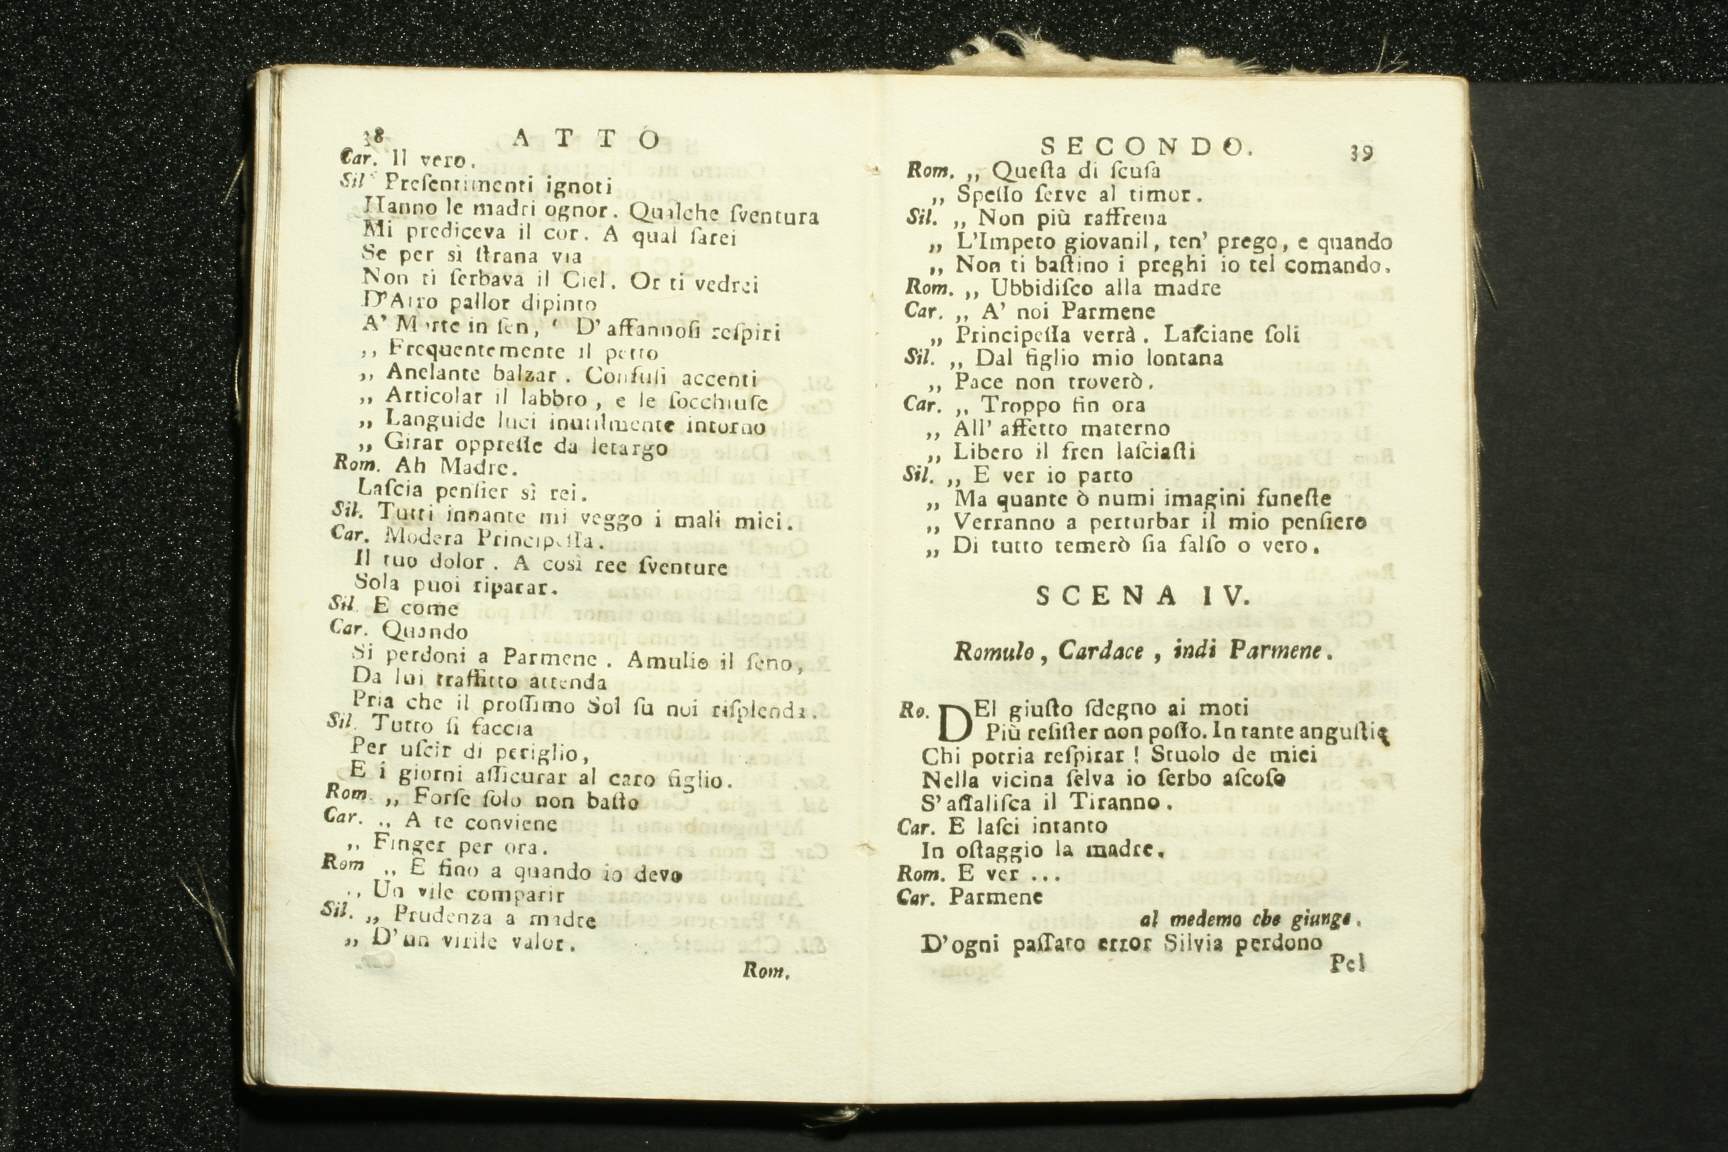 38 A T T O
Car. Il vero.
Sil Preſentimenti ignoti
Hanno le madri ognor. Qualche ſventura
Mi prediceva il cor. A qual ſarei
Se per sì ſtrana via
Non ti ſerbava il Ciel. Or ti vedrei
D'Atro pallor dipinto
A' Morte in ſen, " D' affannoſi reſpiri
,, Frequentemente il petto
,, Anelante balzar. Confuſi accenti
,, Articolar il labbro, e le ſocchiuſe
,, Languide luci inutilmente intorno
,, Girar oppreſſe da letargo
Rom. Ah Madre.
Laſcia penſier sì rei.
Sil. Tutti innante mi veggo i mali miei.
Car. Modera Principeſſa.
Il tuo dolor. A così ree ſventure
Sola puoi riparar.
Sil. E come
Car. Quando
Si perdoni a Parmene. Amulio il ſeno,
Da lui traffitto attenda
Pria che il proſſimo Sol ſu noi riſplenda.
Sil. Tutto ſi faccia
Per uſcir di periglio,
E i giorni aſſicurar al caro figlio.
Rom. ,, Forſe ſolo non baſto
Car. ,, A te conviene
,, Finger per ora.
Rom ,, E fino a quando io devo
,, Un vile comparir
Sil. ,, Prudenza a madre
,, D'un virile valor.
Rom.
SECONDO. 39
Rom. ,, Queſta di ſcuſa
,, Speſſo ſerve al timor.
Sil. ,, Non più raffrena
,, L'Impeto giovanil, ten' prego, e quando
,, Non ti baſtino i preghi io tel comando.
Rom. ,, Ubbidiſco alla madre
Car. ,, A' noi Parmene
,, Principeſſa verrà. Laſciane ſoli
Sil. ,, Dal figlio mio lontana
,, Pace non troverò.
Car. ,, Troppo fin ora
,, All' affetto materno
,, Libero il fren laſciaſti
Sil. ,, E ver io parto
,, Ma quante ò numi imagini funeſte
,, Verranno a perturbar il mio penſiero
,, Di tutto temerò ſia falſo o vero.
SCENA IV.
Romulo, Cardace, indi Parmene.
Ro. DEl giuſto ſdegno ai moti
Più reſiſter non poſſo. In tante anguſtie
Chi potria reſpirar! Stuolo de miei
Nella vicina ſelva io ſerbo aſcoſo
S'aſſaliſca il Tiranno.
Car. E laſci intanto
In oſtaggio la madre.
Rom. E ver ...
Car. Parmene
al medemo che giunge.
D'ogni paſſato error Silvia perdono
Pel